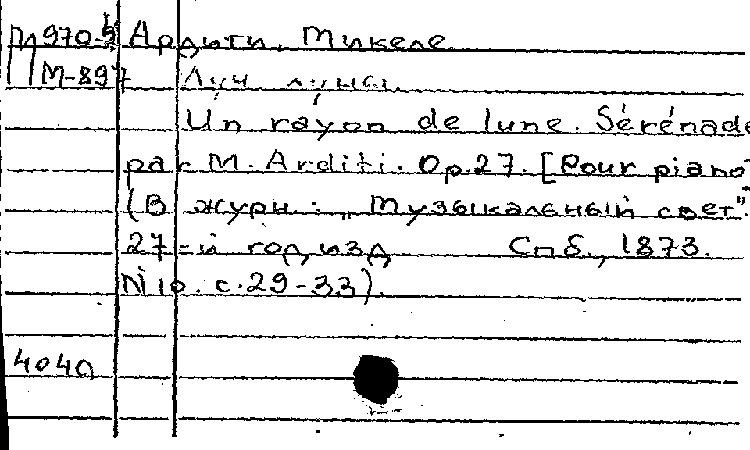 П 970-5 Ардити, Микеле.
М-897 Луч луны.
Un rayon de lune. Sérénade
par M. Arditi. Op.27. [Pour piano
(В журн.: „Музыкальный свет".
27-й год изд Спб., 1873.
№10. с.29-33).
4040